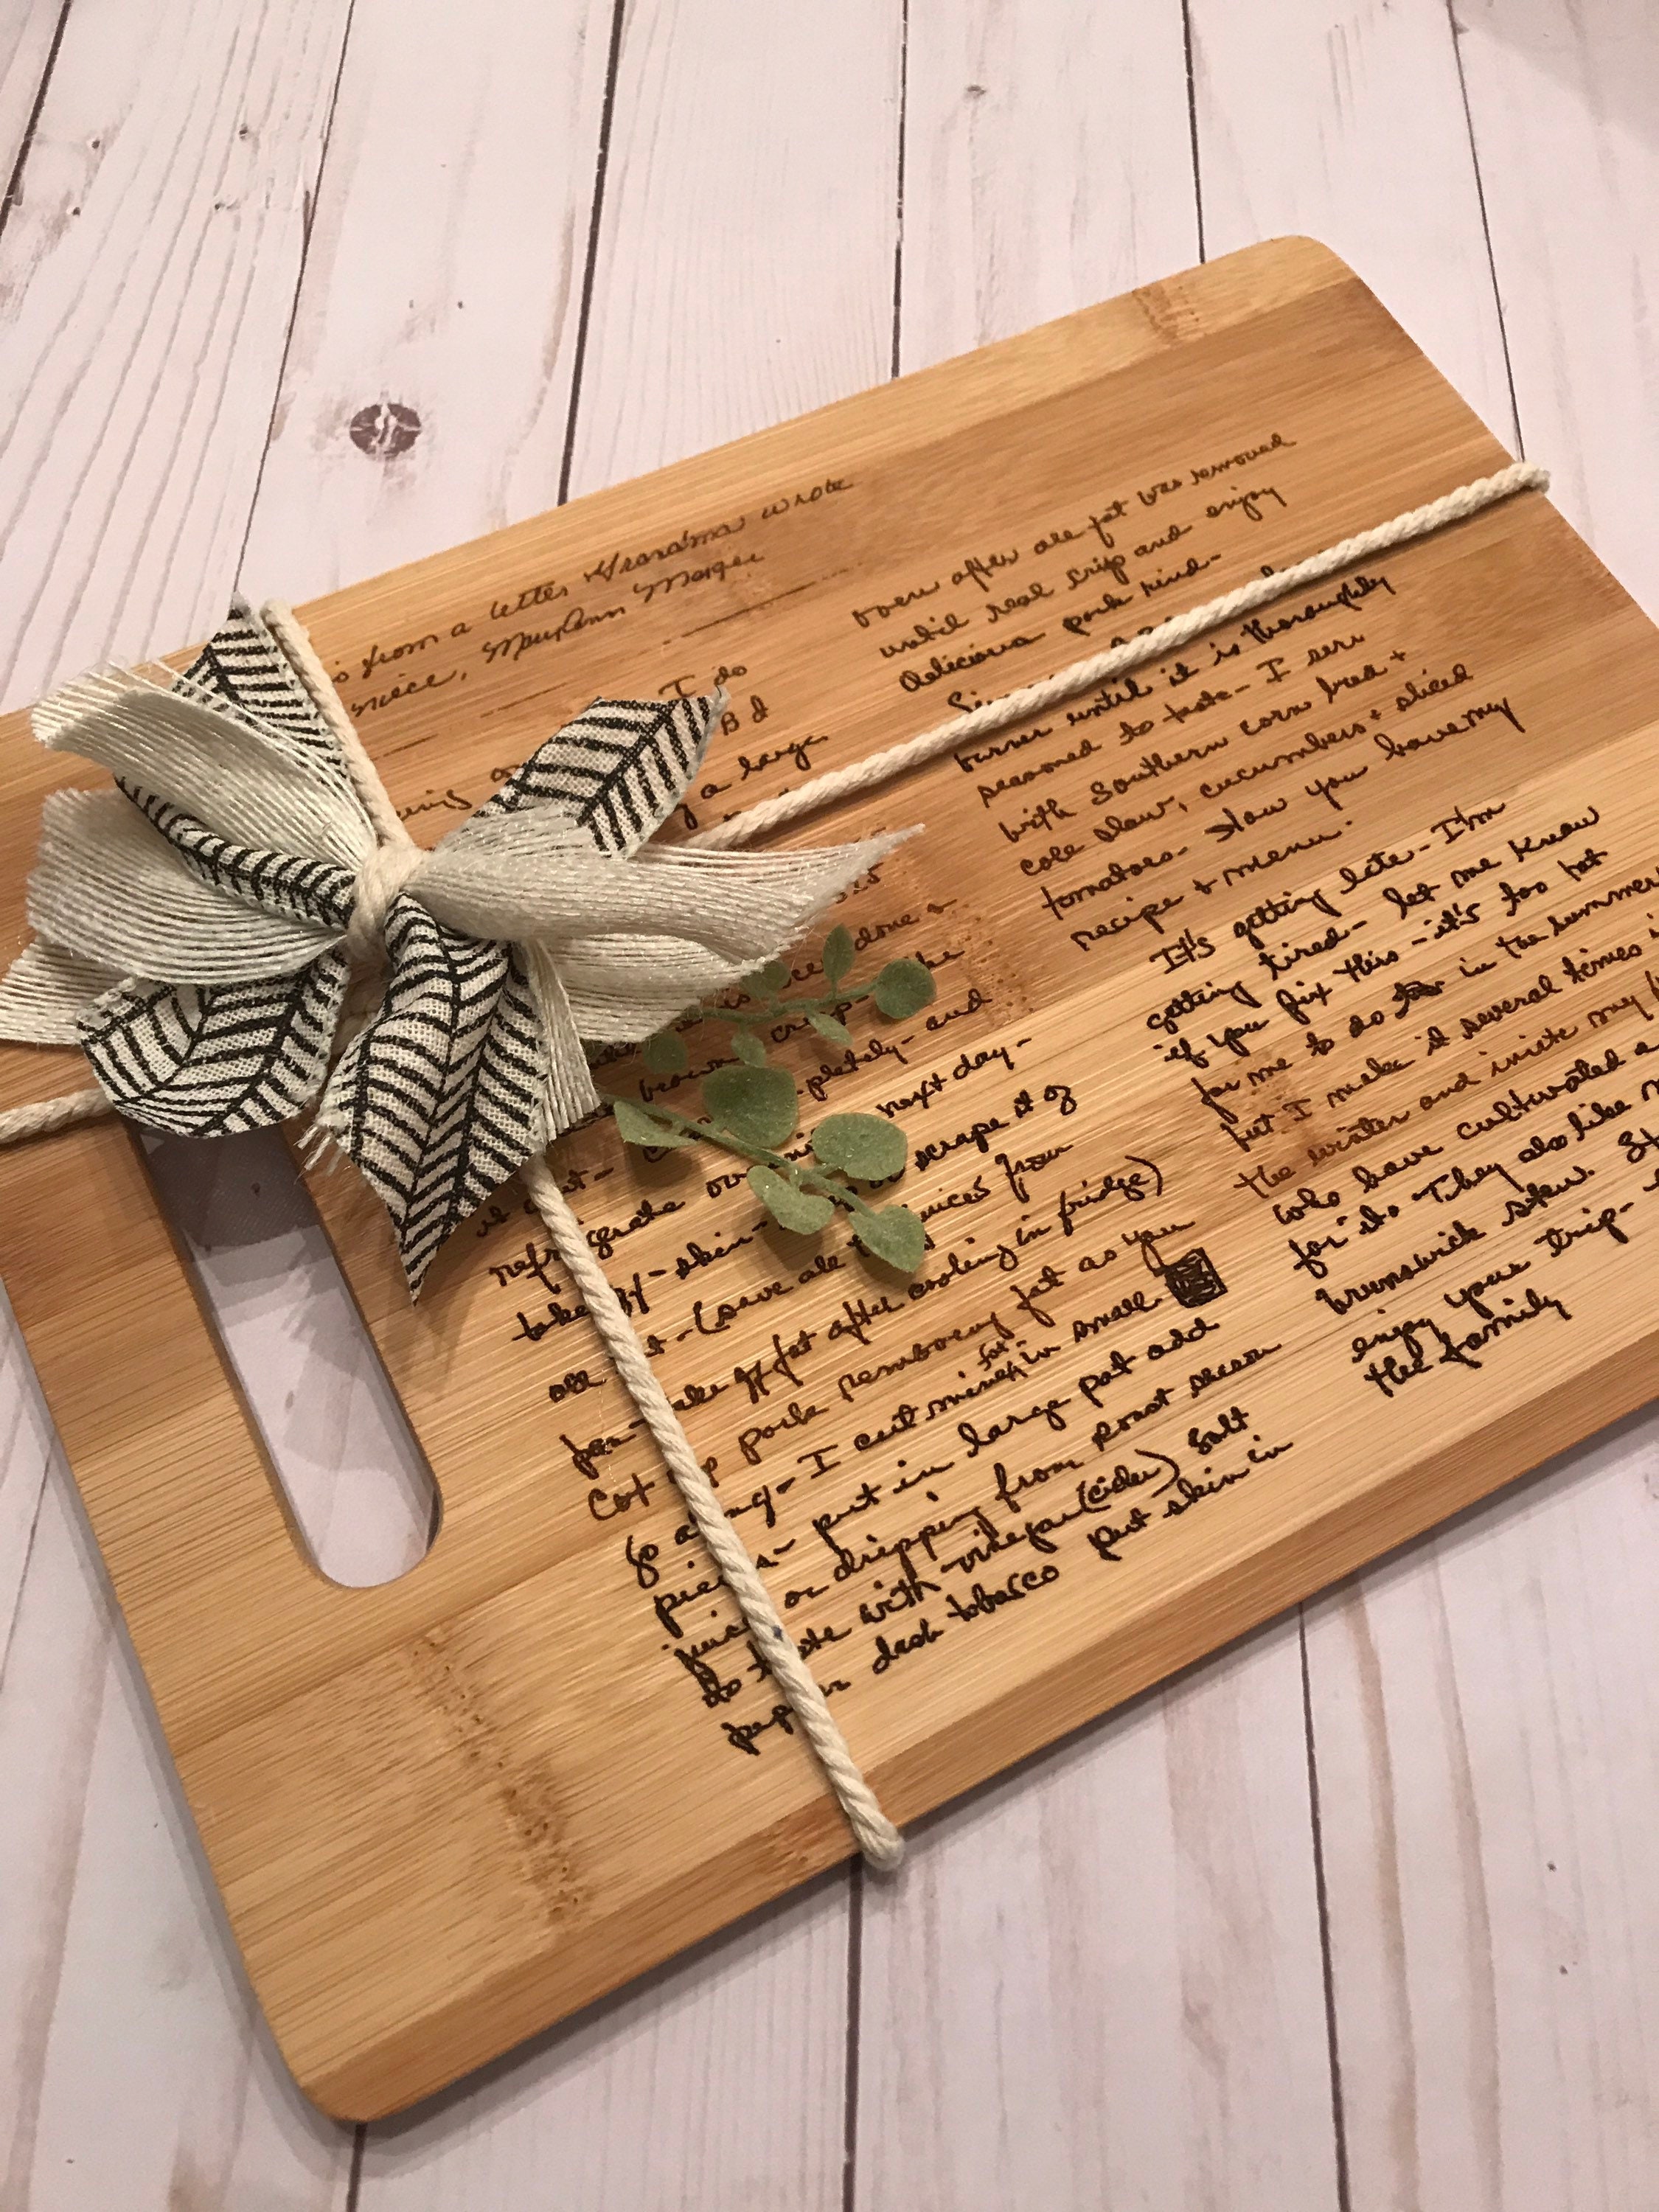 is from a letter Grandma wrote
niece, MaryAnn
I do
B d
a large
done +
like
brown crisp-
pletely- and
it out-
refrigerate next day-
take off- skin- scrape it of
all t- (save all juices from
pan- take off fat after cooling in fridge)
Cut up pork removing fat as you
go along- I cut mine in fat small
pieces- put in large pot add
juice or dripping from roast season
to taste with vinegar (cider) salt
pepper dash tobasco put skin in
oven after all fat was removed
until real crisp and enjoy
delicious pork rind-
burner until it is thoroughly
seasoned to taste- I serv
with Southern corn bread +
cole slaw, cucumbers + sliced
tomatoes- Now you have my
recipe + menu.
It's getting late- I'm
getting tired- let me know
if you fix this- it's too hot
for me to do in the summer
but I make it several times
the winter and invite my
who have cultivated a
for it. They also like
brunswick stew.
enjoy your trip-
the family